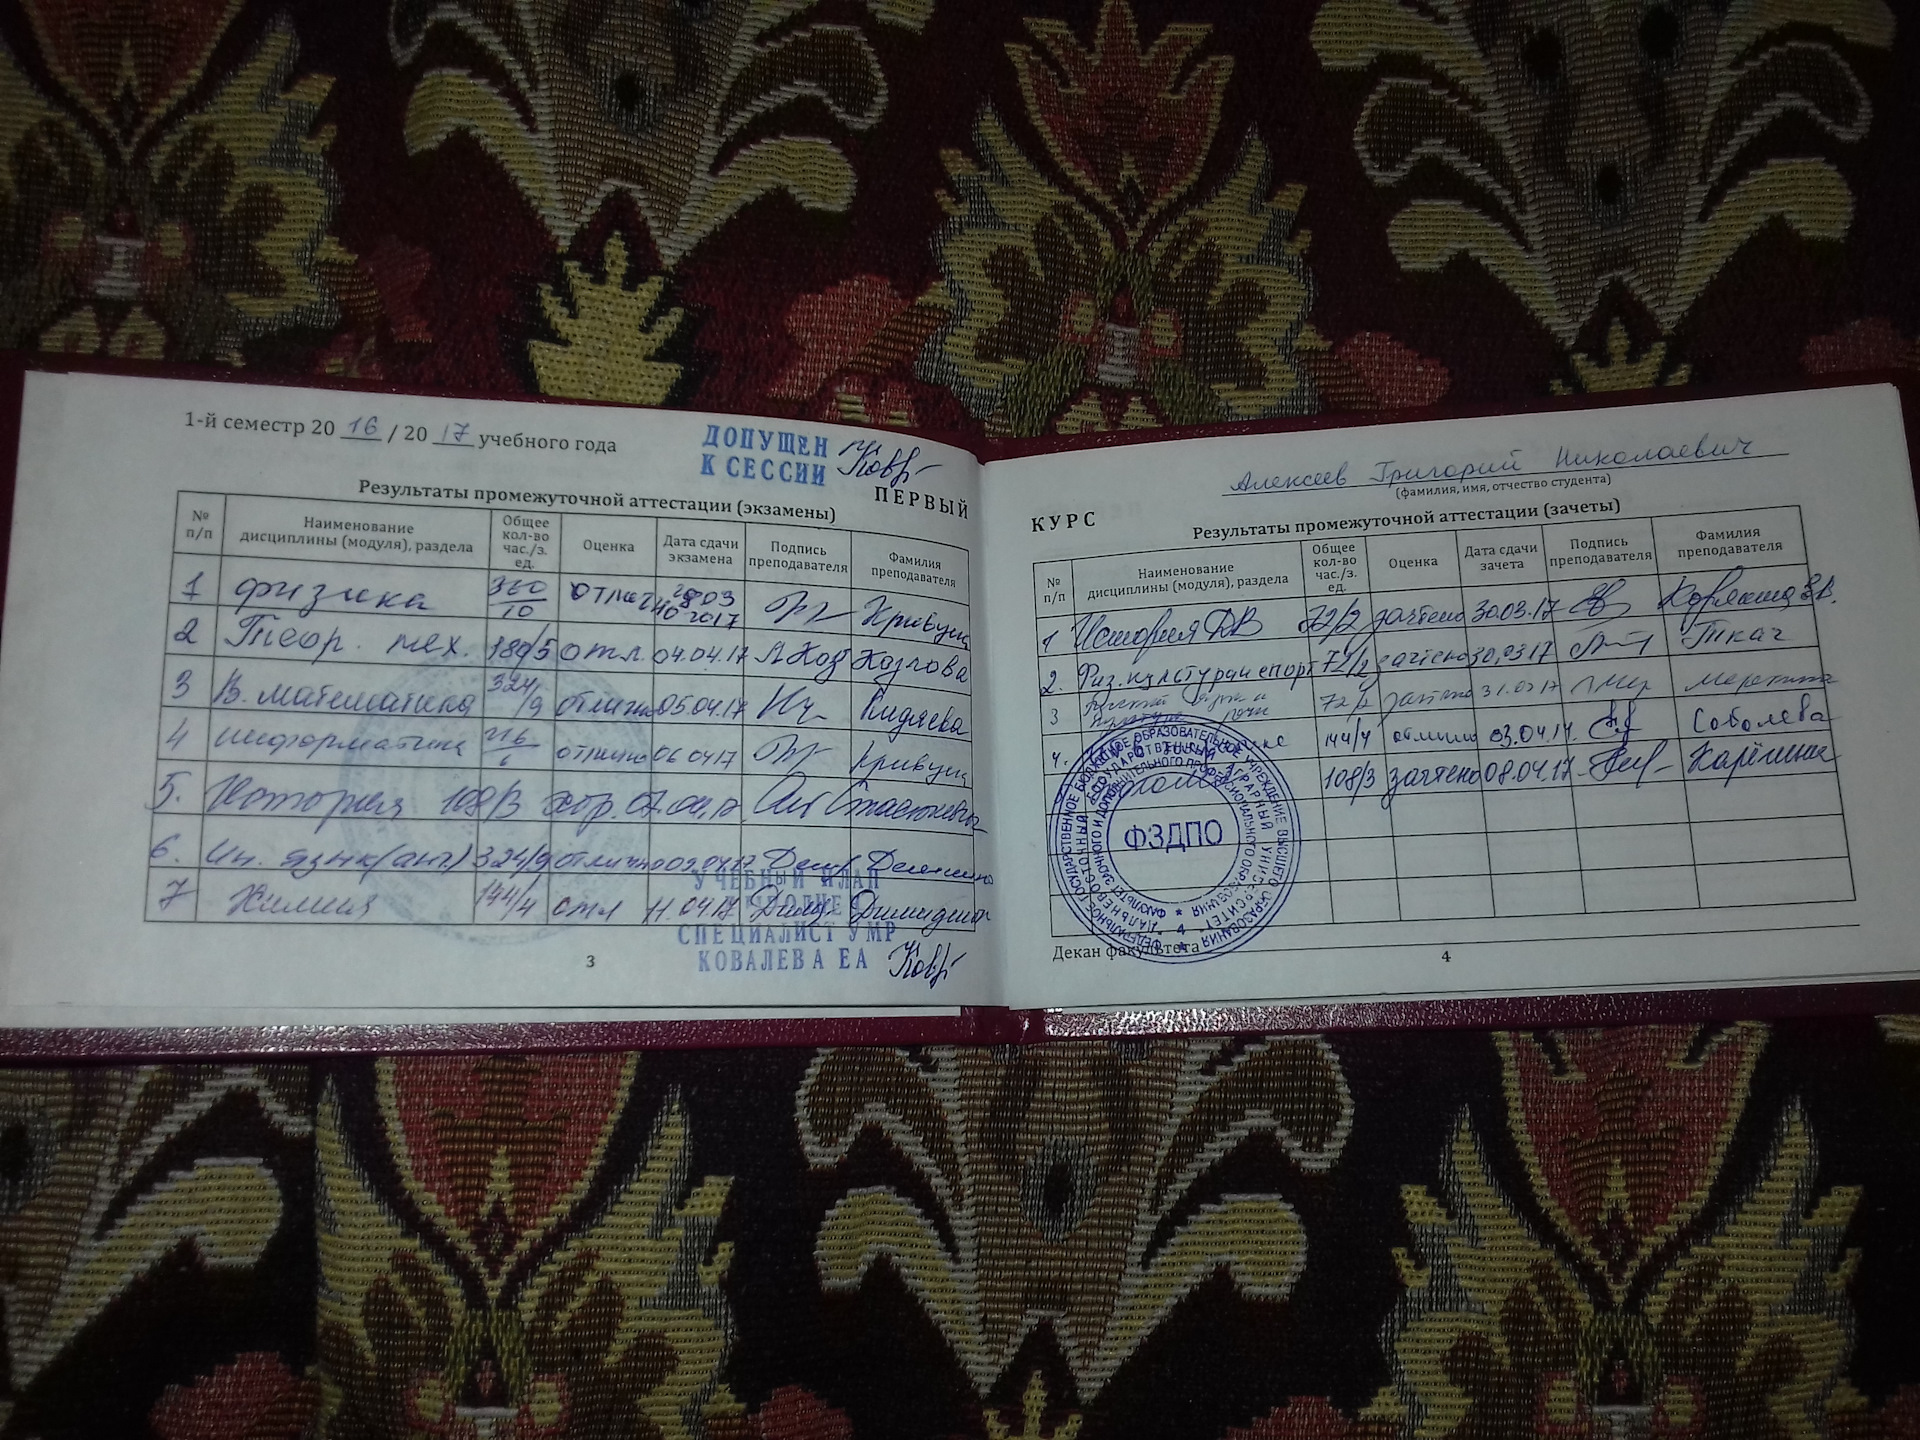 1-й семестр 20 16 / 20 17 учебного года
ДОПУЩЕН
К СЕССИИ
Результаты промежуточной аттестации (экзамены)
ПЕРВЫЙ
№ п/п Наименование дисциплины (модуля), раздела Общее кол-во час./з. ед. Оценка Дата сдачи экзамена Подпись преподавателя Фамилия преподавателя
1 физика 360/10 03 2017 Кривуца
2 Теор. мех. 180/5 отл. 04.04.17 Козлова
3 В. математика 324/9 отлично 05.04.17 Кидяева
4 информатика 216/6 отлично 06.04.17 Кривуца
5. История 108/3 хор. 07.04.17
6. Ин. язык (анг.) 324/9 отлично
7 Химия 144/4 отл 11.04.17
УЧЕБНЫЙ ПЛАН
ВЫПОЛНЕН
СПЕЦИАЛИСТ УМР
КОВАЛЕВА ЕА
3
Алексеев Григорий Николаевич
(фамилия, имя, отчество студента)
КУРС
Результаты промежуточной аттестации (зачеты)
№ п/п Наименование дисциплины (модуля), раздела Общее кол-во час./з. ед. Оценка Дата сдачи зачета Подпись преподавателя Фамилия преподавателя
1 История ДВ 72/2 зачтено 30.03.17
2. Физ. культура и спорт 72/2 зачтено 30.03.17 Ткач
3 Русский язык и культура речи 72/2 зачтено 31.03.17
4. 144/4 отлично 03.04.17 Соболева
108/3 зачтено 08.04.17
ФЗДПО
Декан факультета
4